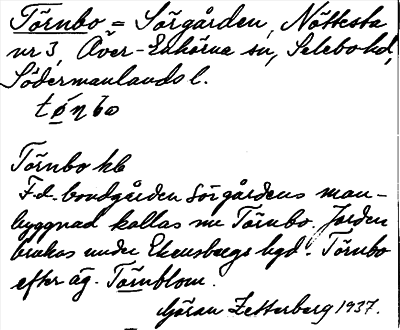 Törnbo = Sörgården, Nöttesta
nr 3, Över-Enhörna sn, Selebo hd,
Södermanlands l.
tǿηbo
Törnbo hb
F.d. bondgården Sörgårdens man-
byggnad kallas nu Törnbo. Jorden
brukas under Ekensbergs hgd. Törnbo
efter äg. Törnblom.
Göran Zetterberg 1937.